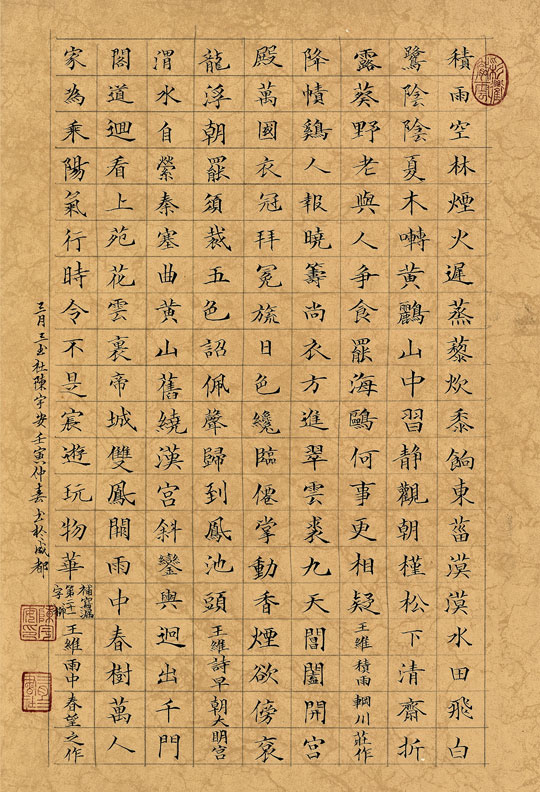 積雨空林煙火遲蒸藜炊黍餉東菑漠漠水田飛白
鷺陰陰夏木囀黃鸝山中習靜觀朝槿松下清齋折
露葵野老與人爭食罷海鷗何事更相疑王維積雨輞川莊作
降幘鷄人報曉籌尚衣方進翠雲裘九天閶闔開宮
殿萬國衣冠拜冕旒日色纔臨僊掌動香煙欲傍袞
龍浮朝罷須裁五色詔佩聲歸到鳳池頭王維詩早朝大明宮
渭水自縈秦塞曲黃山舊繞漢宮斜鑾輿迥出千門
閣道迴看上苑花雲裏帝城雙鳳闕雨中春樹萬人
家為乘陽氣行時令不是宸遊玩物華
補寫漏
字柳
王維雨中春望之作
三月三書社陳宇安壬寅仲春書於成都